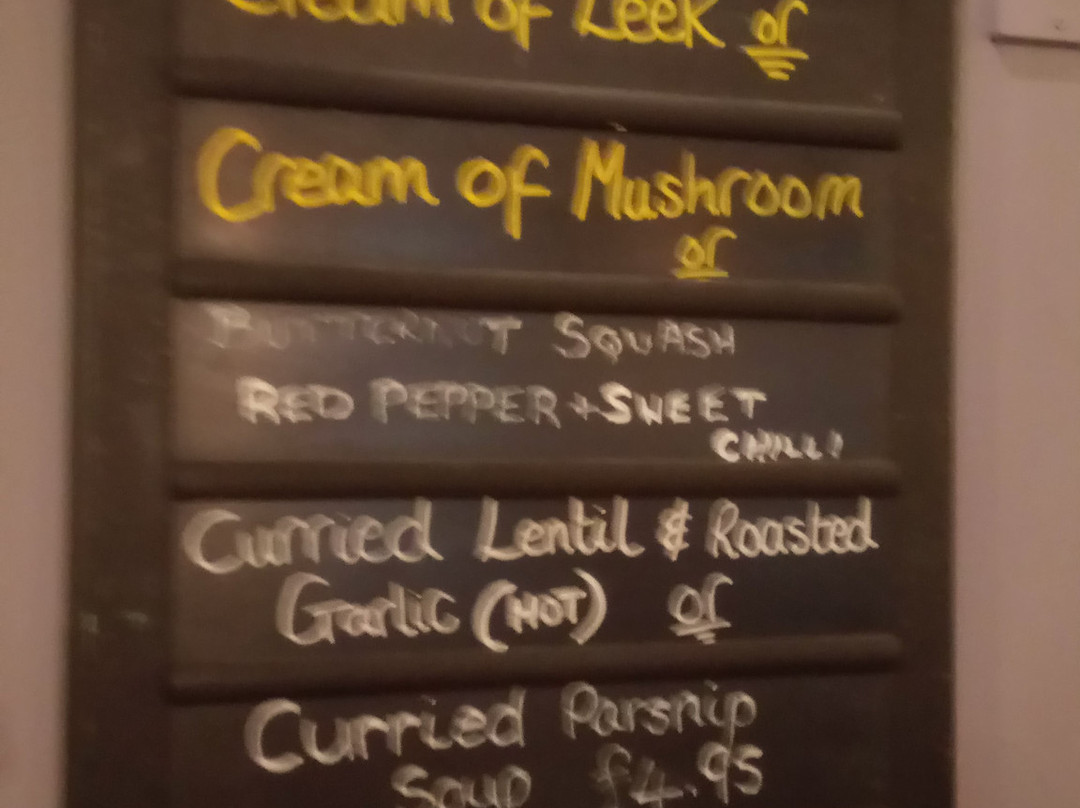 Cream of Leek or
Cream of Mushroom
or
BUTTERNUT SQUASH
RED PEPPER + SWEET
CHILLI
Curried Lentil & Roasted
Garlic (HOT) or
Curried Parsnip
Soup £4.95